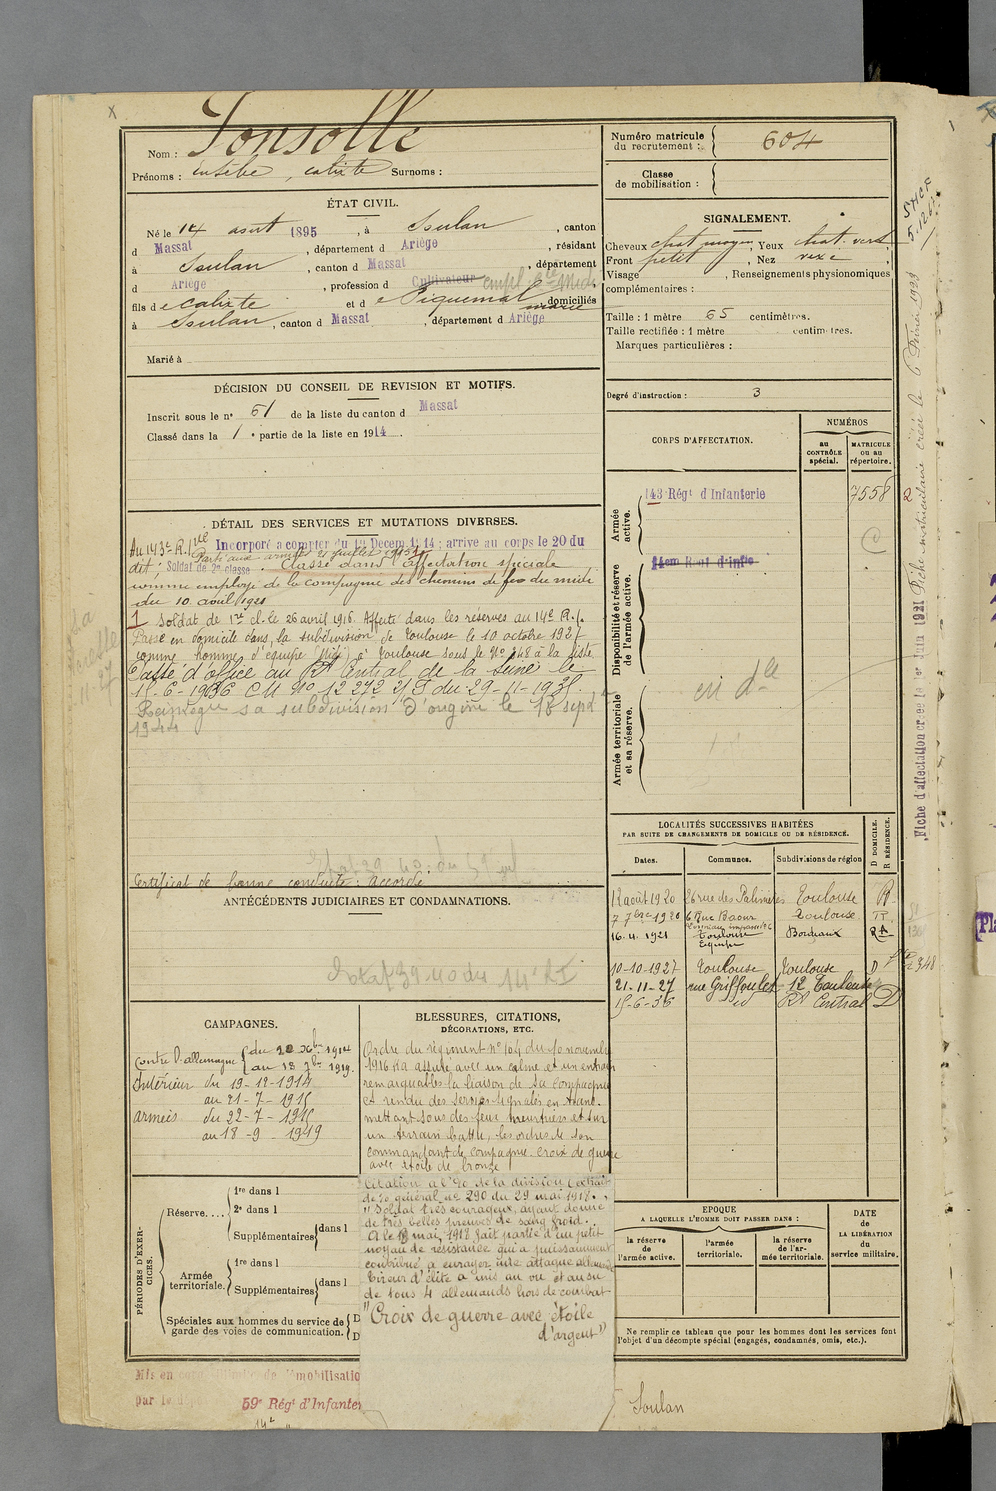 Nom : Sonsolle
Prénoms : Eusèbe, calixte Surnoms :
ÉTAT CIVIL.
Né le 14 aout 1895, à Soulan, canton
d Massat, département d Ariège, résidant
à Soulan, canton d Massat, département
d Ariège, profession d Cultivateur empl. Cie Midi
fils de Calixte et de Piquemal marie, domiciliés
à Soulan, canton d Massat, département d Ariège
Marié à
DÉCISION DU CONSEIL DE REVISION ET MOTIFS.
Inscrit sous le n° 61 de la liste du canton d Massat
Classé dans la 1e partie de la liste en 1914.
DÉTAIL DES SERVICES ET MUTATIONS DIVERSES.
Au 143e R. Incorporé a compter du Décem. 1914 ; arrive au corps le 20 du
Parti aux armées 21 juillet 1915
dit ; Soldat de 2e classe. Classé dans l'affectation spéciale
comme employé de la compagnie des chemins de fer du midi
du 10 avril 1921
1 Soldat de 1re cl. le 26 avril 1916. Affecté dans les réserves au 14e R.I.
Passé en domicile dans la subdivision de Toulouse le 10 octobre 1927
comme homme d'équipe (Midi) à Toulouse sous le N° 348 à la liste
Classé d'office au Rt Central de la Seine le
15-6-1936 CM N° 12272 2/S du 29-11-1935.
Réintègre sa subdivision d'origine le 18 sept
1944
Certificat de bonne conduite : accordé
ANTÉCÉDENTS JUDICIAIRES ET CONDAMNATIONS.
Etat 39-40 du 14e RI
CAMPAGNES.
Contre l'allemagne du 20 Xbre 1914
au 18 7bre 1919.
Intérieur du 19-12-1914
au 21-7-1915
armées du 22-7-1915
au 18-9-1919
BLESSURES, CITATIONS,
DÉCORATIONS, ETC.
Ordre du régiment N° 104 du 10 novembre
1916 "a assuré avec un calme et un entrain
remarquables la liaison de sa compagnie
et rendu des services signalés en trans-
mettant sous des feux meurtriers et sur
un terrain battu, les ordres de son
commandant de compagnie. croix de guerre
avec étoile de bronze
Citation à l'O. de la division (extrait
de l'O général n° 290 du 29 mai 1918.
"Soldat très courageux, ayant donné
de très belles preuves de sang froid.
A le mai 1918 fait partie d'un petit
noyau de résistance qui a puissamment
contribué à enrayer une attaque allemande
Tireur d'élite a mis au vu et au su
de tous 4 allemands hors de combat
"Croix de guerre avec étoile
d'argent"
PÉRIODES D'EXERCICES.
Réserve....
1re dans l
2e dans l
Supplémentaires dans l
Armée territoriale.
1re dans l
Supplémentaires dans l
Spéciales aux hommes du service de
garde des voies de communication.
D
D
Mis en
de mobilisatio
par le d
59e Régt d'Infanter
14e "
Numéro matricule
du recrutement : 604
Classe
de mobilisation :
SIGNALEMENT.
Cheveux chat. moyen, Yeux chat. vert,
Front petit, Nez vexe
Visage , Renseignements physionomiques
complémentaires :
Taille : 1 mètre 65 centimètres.
Taille rectifiée : 1 mètre centimètres.
Marques particulières :
Degré d'instruction : 3
CORPS D'AFFECTATION.
NUMÉROS
au CONTRÔLE spécial.
MATRICULE OU AU répertoire.
Armée active.
143 Régt d'Infanterie
7558
2
Disponibilité et réserve de l'armée active.
14em Regt d'infie
Armée territoriale et sa réserve.
LOCALITÉS SUCCESSIVES HABITÉES
PAR SUITE DE CHANGEMENTS DE DOMICILE OU DE RÉSIDENCE.
Dates. Communes. Subdivisions de région
D DOMICILE.
R RÉSIDENCE.
12 août 1920 26 rue des Palmiers Toulouse R
7 7bre 1920 6 Rue Baour Toulouse R
16.4.1921 Toulouse Bordeaux RA
10-10-1927 Toulouse Toulouse D 348
21-11-27 rue Griffoulet 12 Toulouse
15-6-36 id Rt Central D
EPOQUE
A LAQUELLE L'HOMME DOIT PASSER DANS :
la réserve de l'armée active.
l'armée territoriale.
la réserve de l'armée territoriale.
DATE
DE
LA LIBÉRATION
du
service militaire.
Ne remplir ce tableau que pour les hommes dont les services font
l'objet d'un décompte spécial (engagés, condamnés, omis, etc.).
Soulan
Fiche d'affectation créée le 1er Juin 1921
Fiche matriculaire créée le 6 Février 1923
Pla